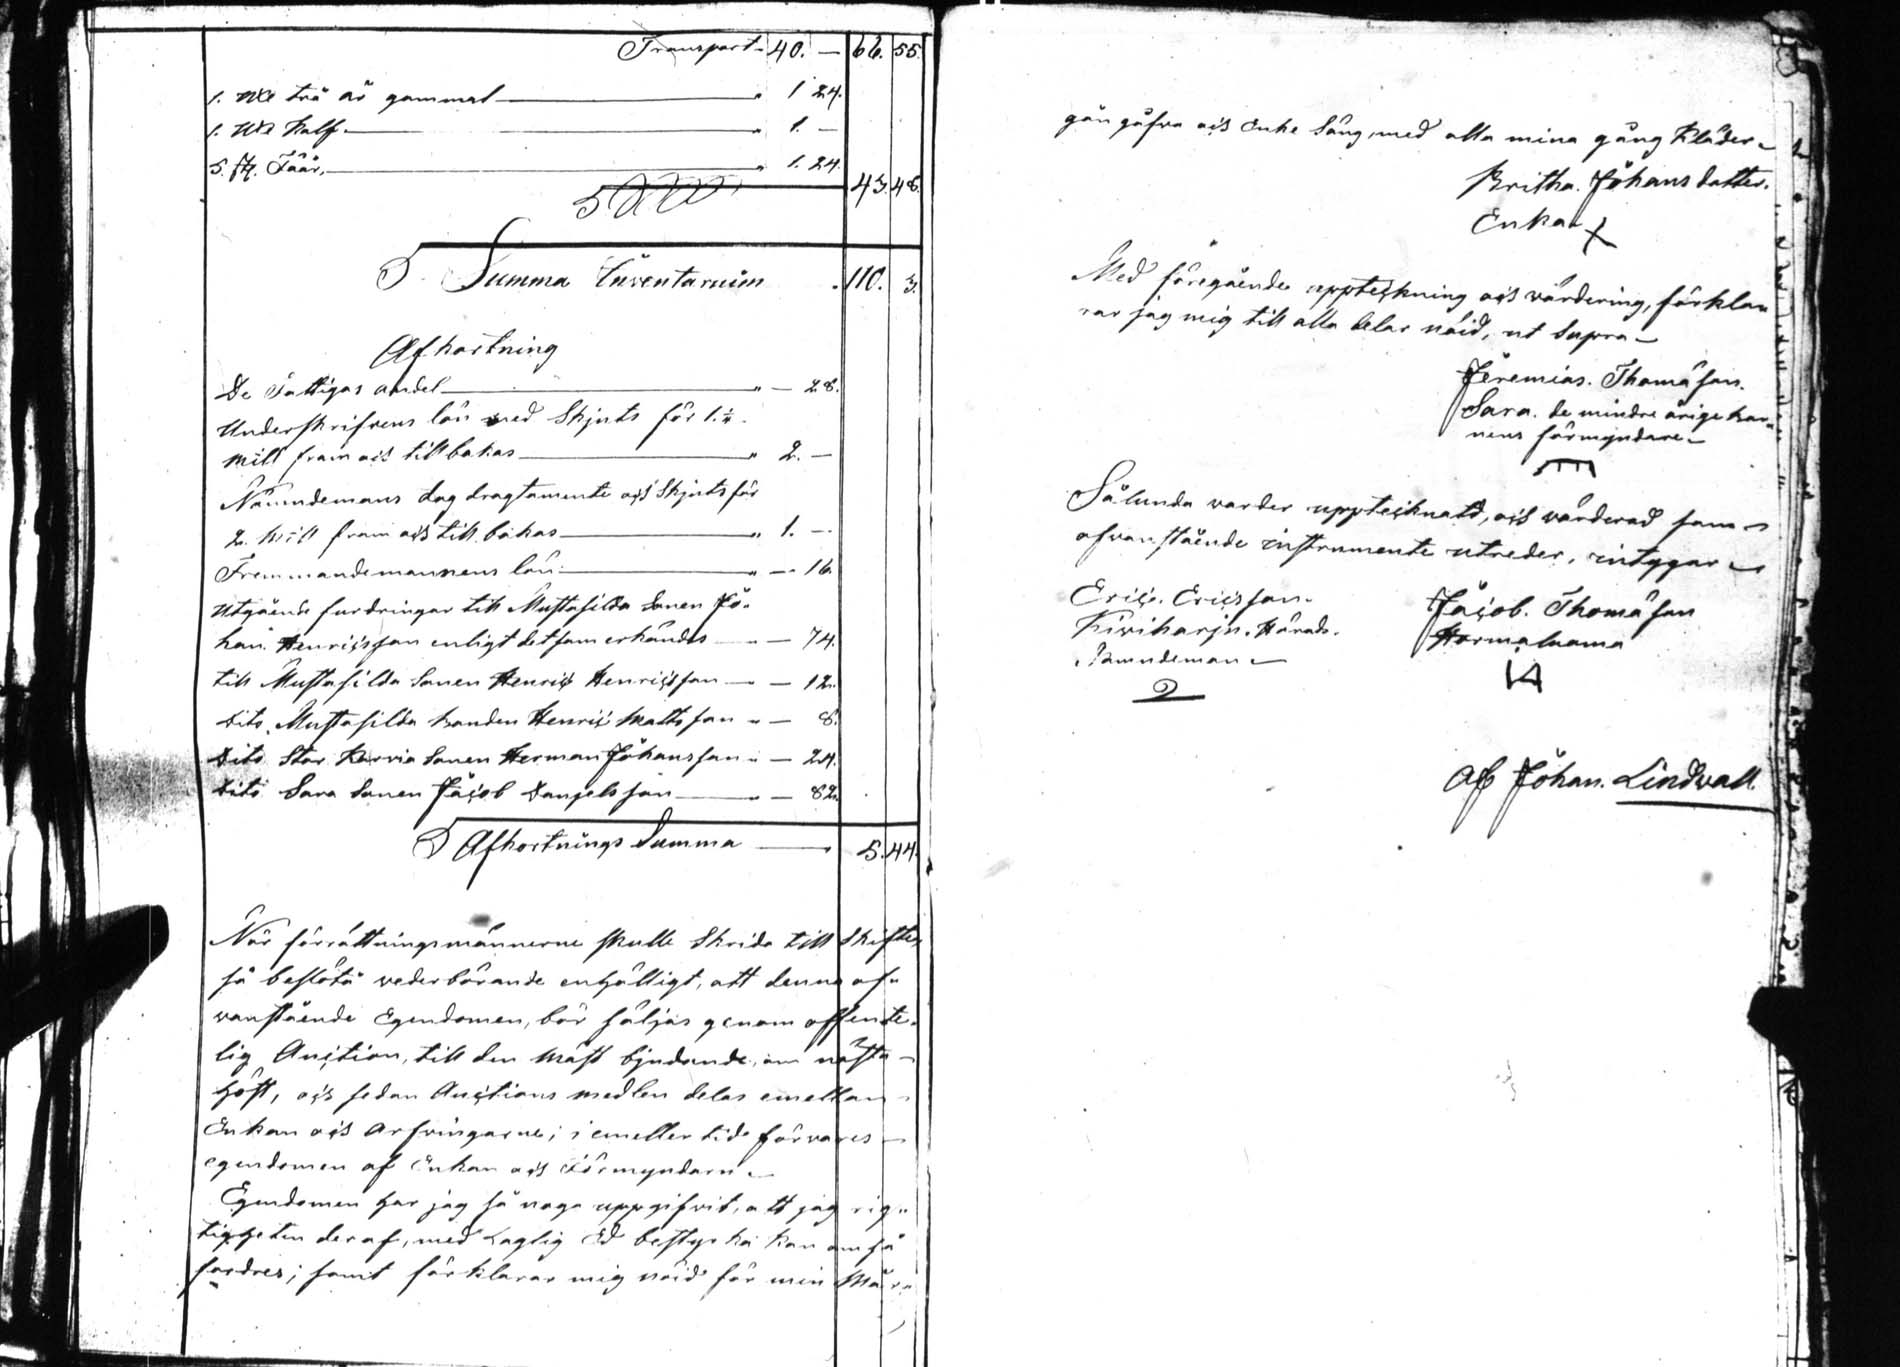 Transport 40. — 66. 55.
1. st. två år gammal — " 1 24.
1. st. kalf — " 1. —
5. st. Fåår, — " 1. 24. 43. 48.
Summa Inventarium . 110. 3.
Afkortning
De Fattigas andel — " — 28.
Underskrifvens lön med Skjuts för 1.¼.
mill fram och tillbakas — " 2. —
Nämndemans dag dragtamente och Skjuts för
2. mill fram och till bakas — " 1. —
Fremmandemannens lön — " — 16.
Utgående fordringar till Mustasilda Sonen Jo-
han. Henricsson enligt det som erkändes — " — 74.
till Mustasilda Sonen Henric Henricsson — " — 12.
Dito Mustasilda bonden Henric Mattsson " — 8.
Dito Stor Karvia Sonen Herman Johansson " — 24.
Dito Sara Sonen Jacob Danjelsson — " — 82.
Afkortnings Summa — 5. 44.
När förrättningsmännerne skulle Skrida till Skifte,
så beslöto vederbörande enhälligt, att denna of-
vanstående Egendomen, bör säljas genom offente-
lig Auction, till den mäst bjudande, om nästa
höst, och sedan Auctions medlen delas emellan
Enkan och Arfvingarne; i emeller tid förvares
egendomen af Enkan och Förmyndarn.
Egendomen har jag så noga uppgifvit, att jag rig-
tigheten deraf, med Laglig Ed bestyrka kan om så
fordres; samt förklarar mig nöid för min Mår-
gån gåfva och Enke Säng, med alla mina gång Kläder
Britha. Johans dotter.
Enka
Med föregående uppteckning och värdering, förkla-
rar jag mig till alla delar nöid, ut Supra
Jeremias. Thomasson.
Sara. de mindre årige bar-
nens förmyndare
Sålunda varder upptecknadt, och värderad som
ofvanstående instrumente utreder, intygar
Eric. Ericsson.
Kiviharju. Härads.
Nämndeman
Jacob. Thomasson
Hormaluoma
Af Johan. Lindwall.